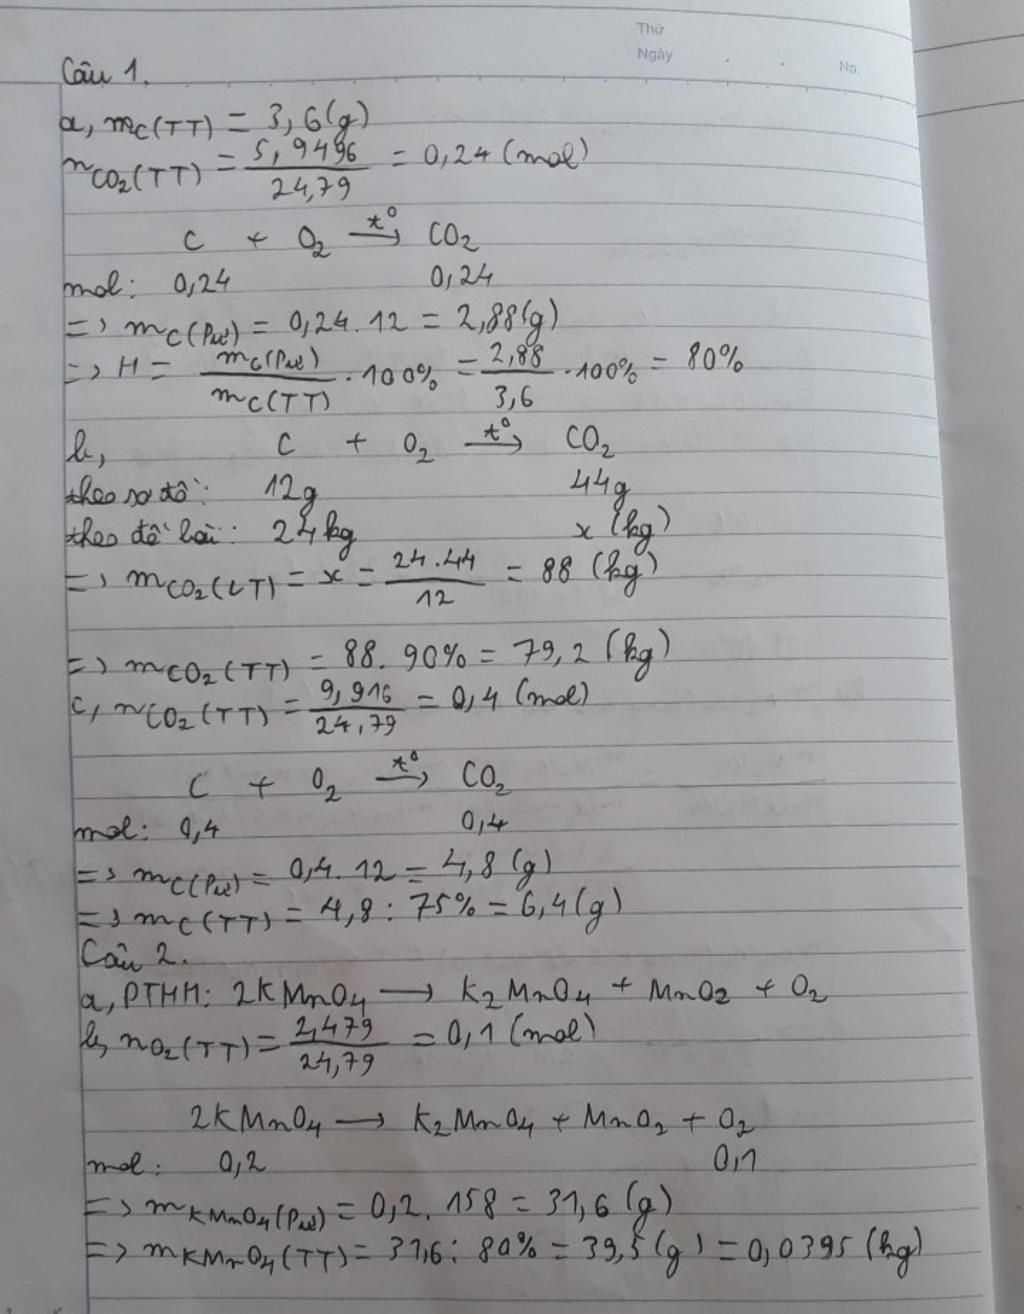 Thứ
Ngày
No.
Câu 1.
a, mC(TT) = 3,6(g)
nCO2(TT) = 5,9496/24,79 = 0,24 (mol)
C + O2 —t°→ CO2
mol: 0,24 0,24
=> mC(Pư) = 0,24.12 = 2,88(g)
=> H = mC(Pư)/mC(TT) .100% = 2,88/3,6 .100% = 80%
b, C + O2 —t°→ CO2
theo sơ đồ: 12g 44g
theo đề bài: 24kg x (kg)
=> mCO2(LT) = x = 24.44/12 = 88 (kg)
=> mCO2(TT) = 88.90% = 79,2 (kg)
c, nCO2(TT) = 9,916/24,79 = 0,4 (mol)
C + O2 —t°→ CO2
mol: 0,4 0,4
=> mC(Pư) = 0,4.12 = 4,8 (g)
=> mC(TT) = 4,8 : 75% = 6,4(g)
Câu 2.
a, PTHH: 2KMnO4 → K2MnO4 + MnO2 + O2
b, nO2(TT) = 2,479/24,79 = 0,1 (mol)
2KMnO4 → K2MnO4 + MnO2 + O2
mol: 0,2 0,1
=> mKMnO4(Pư) = 0,2.158 = 31,6 (g)
=> mKMnO4(TT) = 31,6 : 80% = 39,5 (g) = 0,0395 (kg)